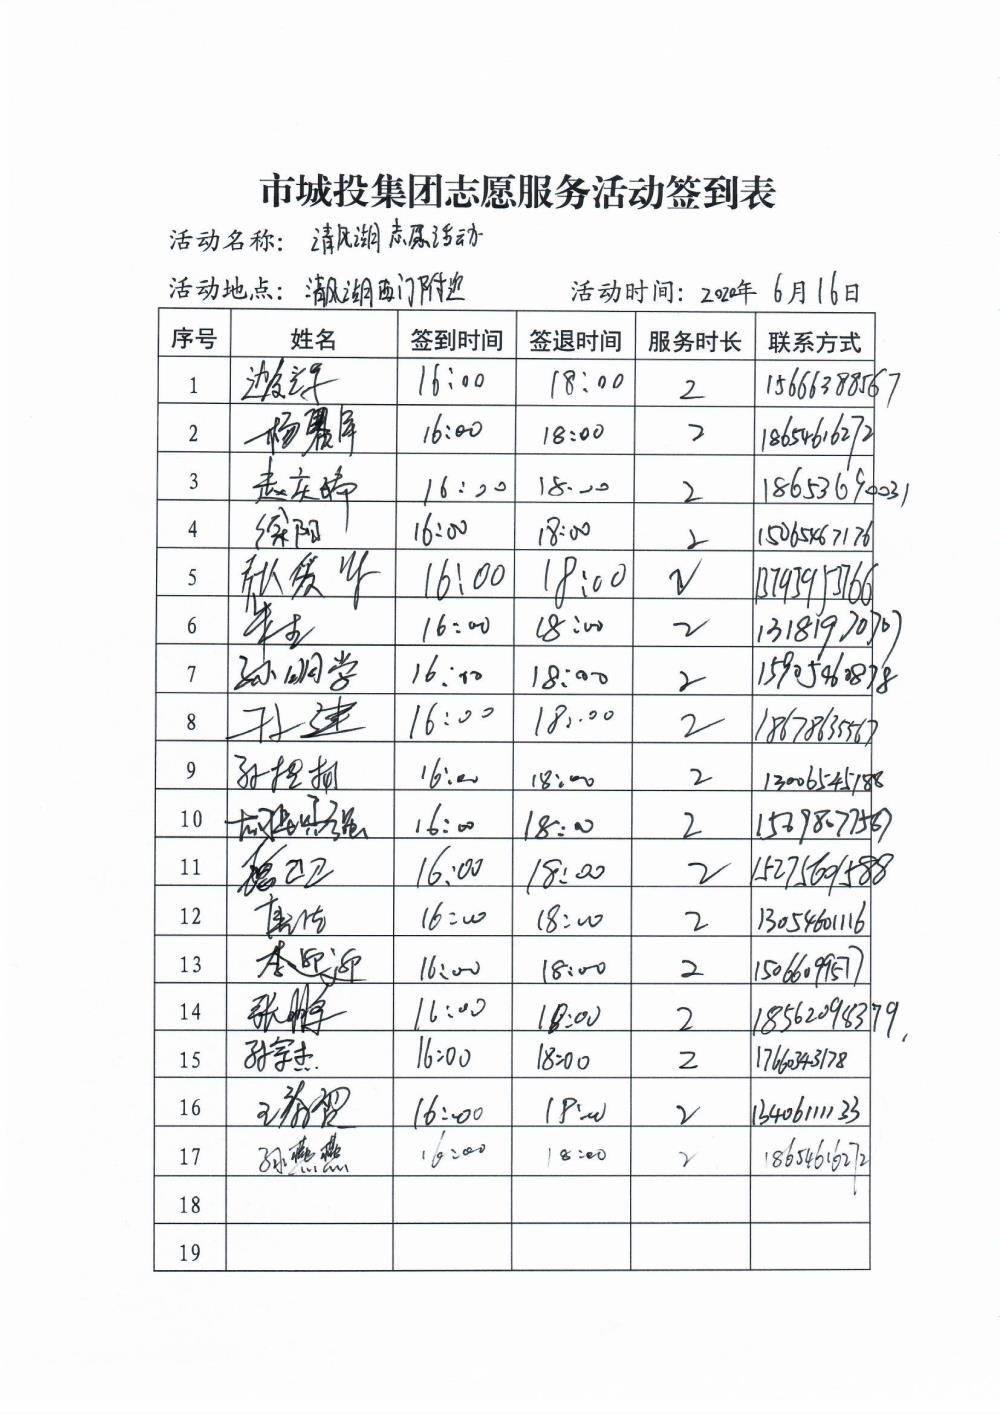 市城投集团志愿服务活动签到表
活动名称: 清风湖志愿活动
活动地点: 清风湖西门附近 活动时间: 2020年 6月16日
序号 姓名 签到时间 签退时间 服务时长 联系方式
1 16:00 18:00 2 15666388567
2 杨 16:00 18:00 2 18654616272
3 赵庆 16:00 18:00 2 18653690031
4 徐阳 16:00 18:00 2 15065467176
5 16:00 18:00 2 13793953766
6 16:00 18:00 2 13181970707
7 孙明学 16:00 18:00 2 15905460878
8 孙建 16:00 18:00 2 18678635567
9 孙 16:00 18:00 2 13006545188
10 16:00 18:00 2
11 16:00 18:00 2 15275601588
12 16:00 18:00 2 13054601116
13 李迎迎 16:00 18:00 2 15066099577
14 张 16:00 18:00 2 18562098379
15 孙宗杰 16:00 18:00 2 17660343178
16 王 16:00 18:00 2 13406111133
17 孙燕燕 16:00 18:00 2 18654616272
18
19